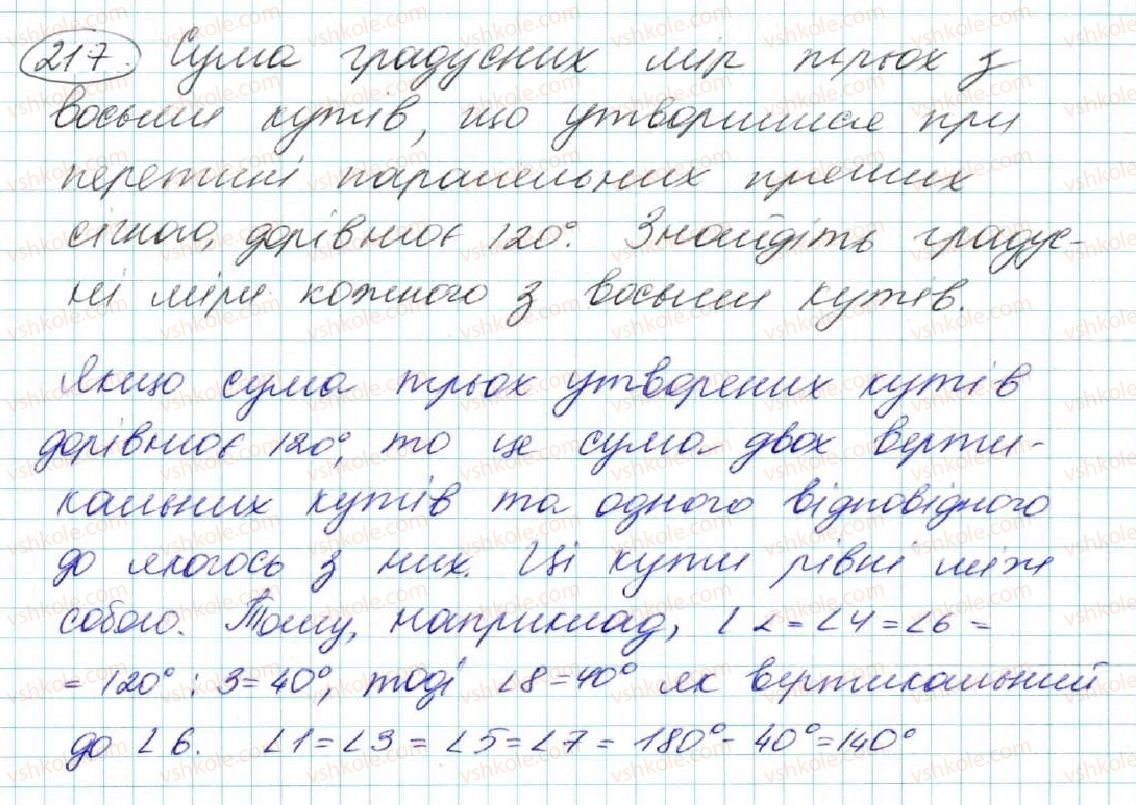 217. Сума градусних мір трьох з
восьми кутів, що утворилися при
перетині паралельних прямих
січною, дорівнює 120°. Знайдіть градус-
ні міри кожного з восьми кутів.
Якщо сума трьох утворених кутів
дорівнює 120°, то це сума двох верти-
кальних кутів та одного відповідного
до якогось з них. Ці кути рівні між
собою. Тому, наприклад, ∠2=∠4=∠6=
=120°:3=40°, тоді ∠8=40° як вертикальний
до ∠6. ∠1=∠3=∠5=∠7=180°-40°=140°